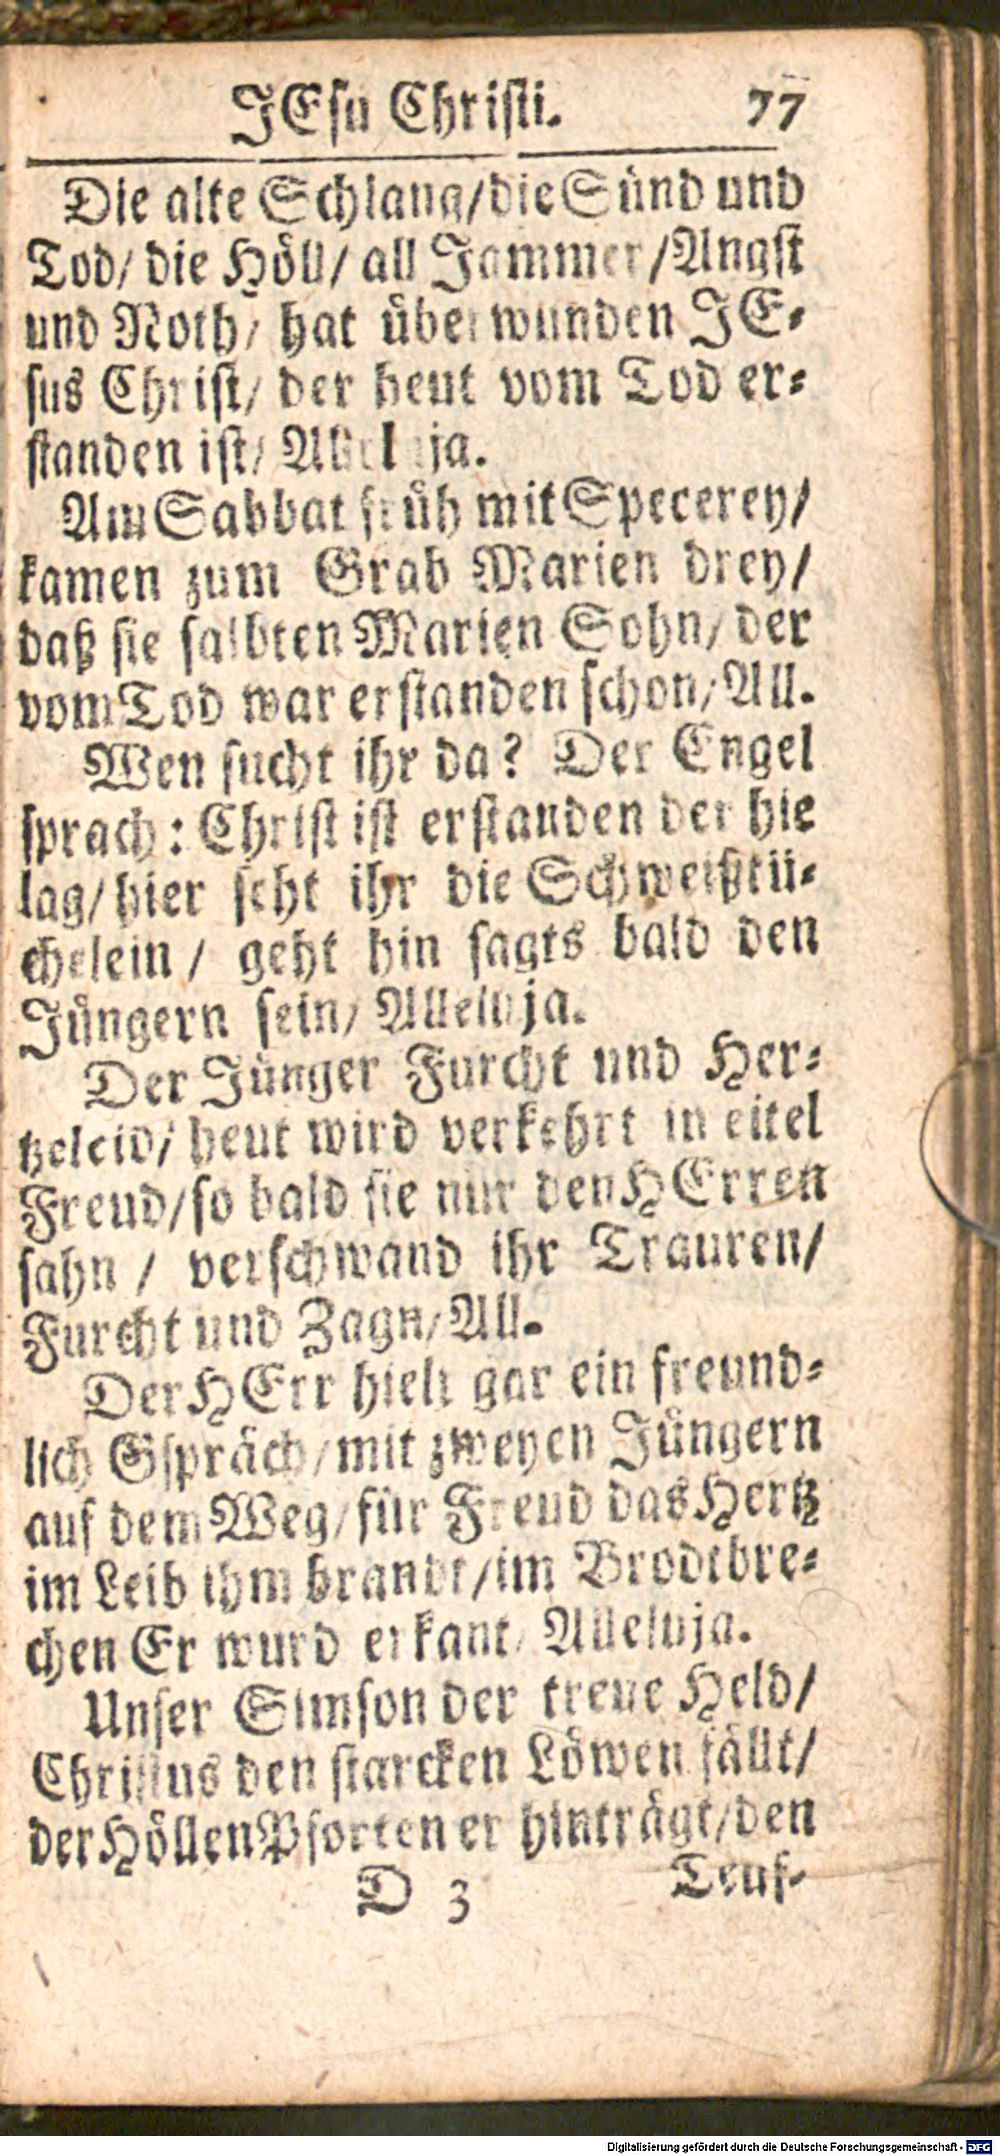 JEsu Christi. 77
Die alte Schlang/die Sünd und
Tod/ die Höll/ all Jammer/Angst
und Noth/ hat überwunden JE-
sus Christ/ der heut vom Tod er-
standen ist/ Alleluja.
Am Sabbat früh mit Specerey/
kamen zum Grab Marien drey/
daß sie salbten Marien Sohn/ der
vom Tod war erstanden schon/ All.
Wen sucht ihr da? Der Engel
sprach: Christ ist erstanden der hie
lag/hier seht ihr die Schweißtü-
chelein / geht hin sagts bald den
Jüngern sein/ Alleluja.
Der Jünger Furcht und Her-
tzeleid/ heut wird verkehrt in eitel
Freud/so bald sie nur den HErren
sahn / verschwand ihr Trauren/
Furcht und Zagn/ All.
Der HErr hielt gar ein freund-
lich Gspräch/mit zweyen Jüngern
auf dem Weg/für Freud das Hertz
im Leib ihm brandt/im Brodtbre-
chen Er wurd erkant/ Alleluja.
Unser Simson der treue Held/
Christus den starcken Löwen fällt/
der Höllen Pforten er hinträgt/den
D 3 Teuf-
Digitalisierung gefördert durch die Deutsche Forschungsgemeinschaft - DFG